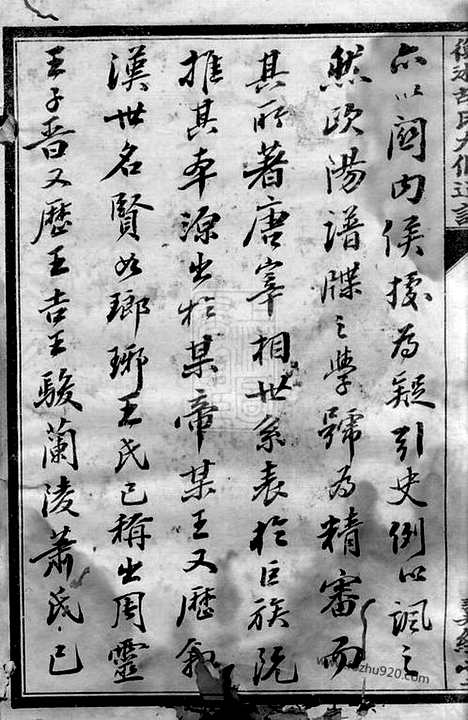 亦以關内侯據為疑引史例以諷之
然歐陽譜牒之學號為精審而
其所著唐宰相世系表於巨族既
推其本源出於某帝某王又歷叙
漢世名賢如瑯琊王氏已稱出周靈
王子晉又歷王吉王駿蘭陵蕭氏已
www.jiazhu920.com